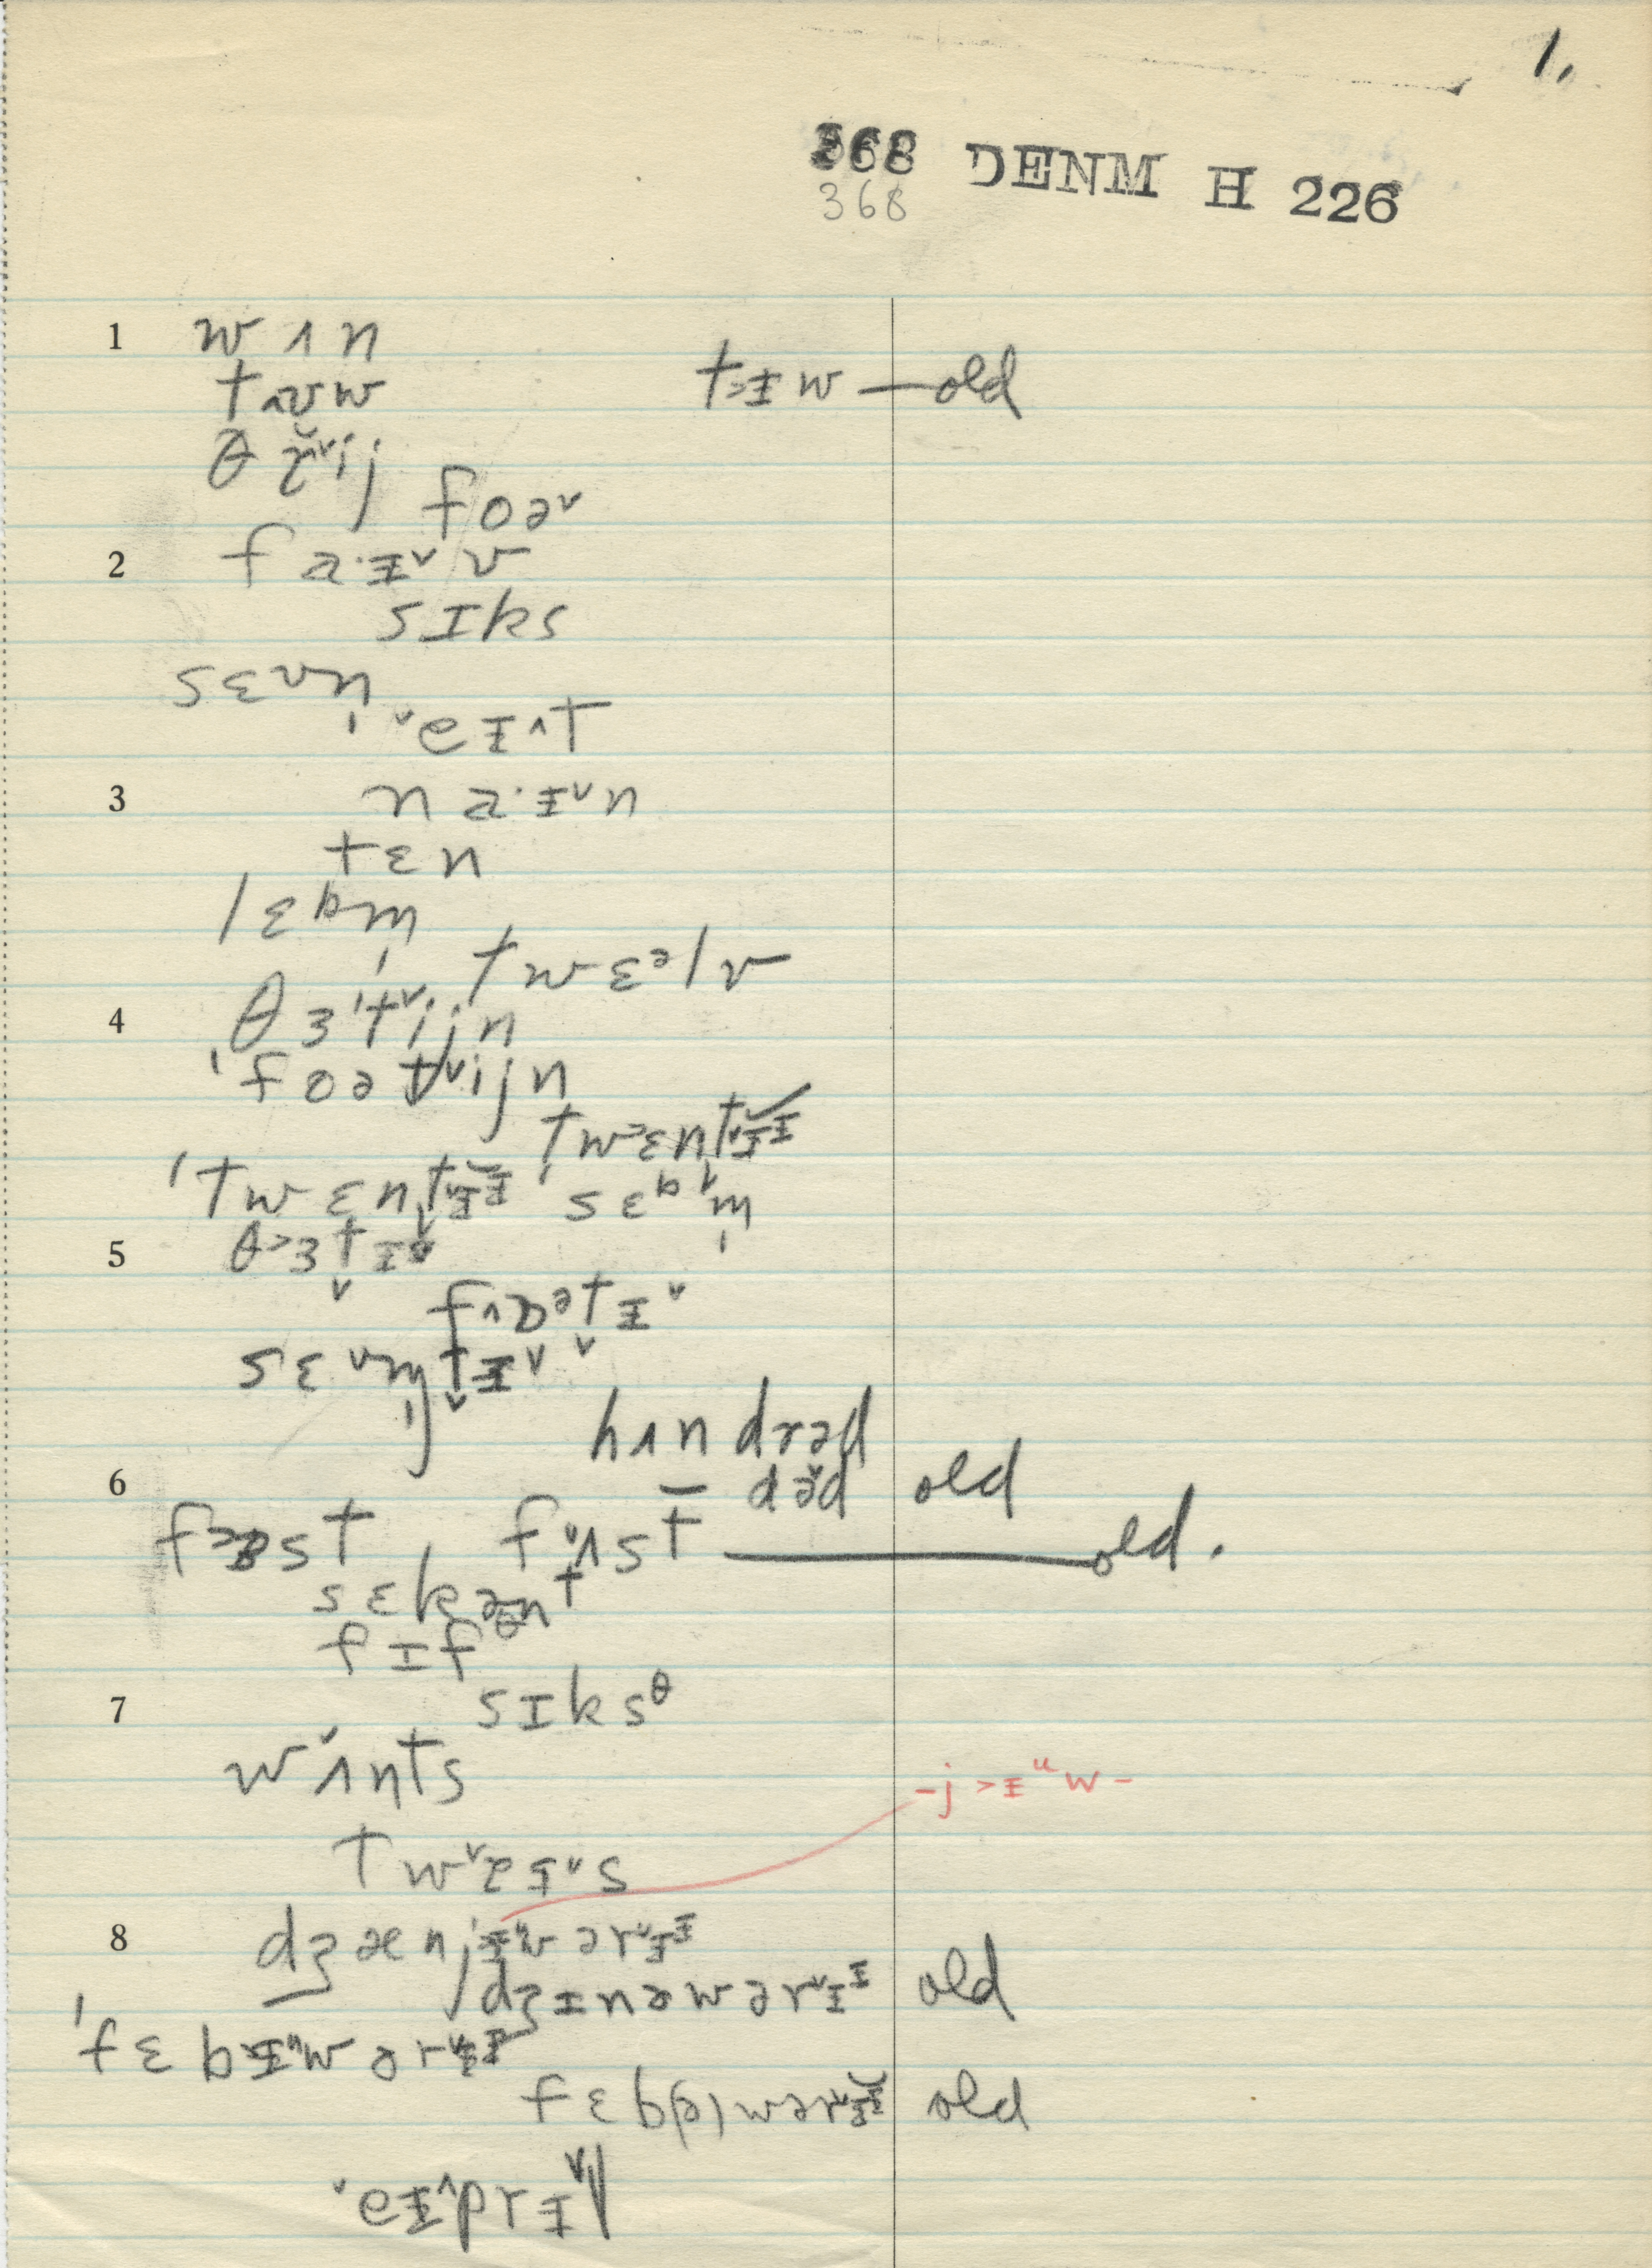 1.
368 DENM H 226
368
1 w ʌ n
t^ʊw t>ɪw — old
θ ɪj
foə˅
2 f a·ɪ˅ v
sɪks
sɛvn̩
˅eɪ^t
3 n a·ɪ˅n
tɛn
lɛbm̩
twɛᵊlv
4 θɜˈt˅ijn
ˈfoət˅ijn
ˈtwɛnt
ˈtwɛnt sɛbm̩
5 θ>ɜt̬ɨ˅
f^ɒᵊt̬ɨ˅
sɛvn̩t̬ɨ˅
hʌndrəd
6 dəd old
f>ɜst, f˅ʌst — old.
sɛkənt
fɪfθ
7 sɪksθ
w˅ʌnts
-j>ɨᵘw-
tw˅s
8 dʒænjɨᵘwər˅ɪ
dʒɨnəwər˅ɪ old
ˈfɛbɨᵘwər˅ɪ
fɛb(ə)wər˅ɪ old
˅eɨ^prɨ˅l